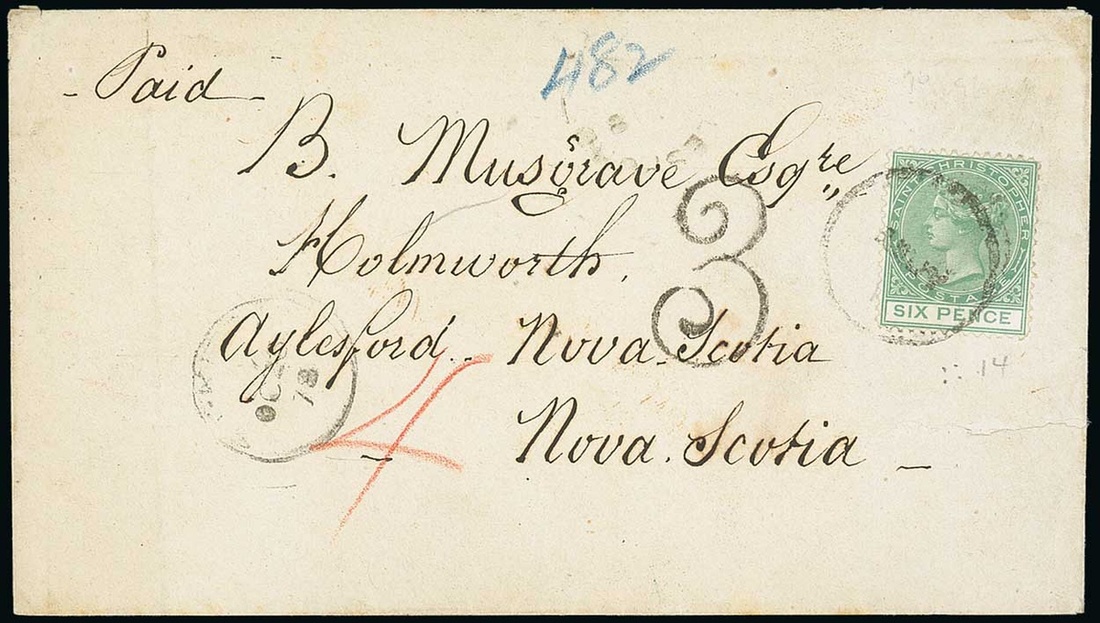 482
Paid
B. Musgrave Esqre
Holmworth,
Aylesford. Nova. Scotia
Nova. Scotia
SAINT CHRISTOPHER
POSTAGE
SIX PENCE
3
4
OC
78
14